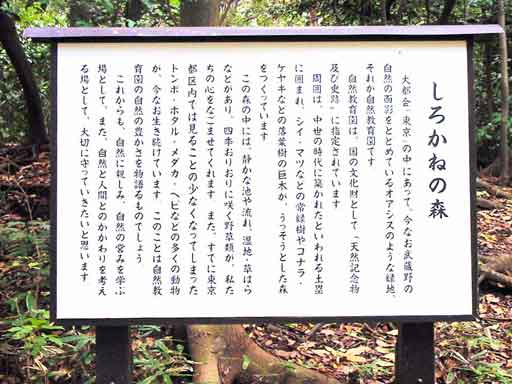 しろかねの森
大都会「東京」の中にあって、今なお武蔵野の
自然の面影をとどめているオアシスのような緑地、
それが自然教育園です
自然教育園は、国の文化財として「天然記念物
及び史跡」に指定されています
周囲は、中世の時代に築かれたといわれる土塁
に囲まれ、シイ・マツなどの常緑樹やコナラ・
ケヤキなどの落葉樹の巨木が、うっそうとした森
をつくっています
この森の中には、静かな池や流れ、湿地・草はら
などがあり、四季おりおりに咲く野草類が、私た
ちの心をなごませてくれます また、すでに東京
都区内では見ることの少なくなってしまった
トンボ・ホタル・メダカ・ヘビなどの多くの動物
が、今なお生き続けています このことは自然教
育園の自然の豊かさを物語るものでしょう
これからも、自然に親しみ、自然の営みを学ぶ
場として、また、自然と人間とのかかわりを考え
る場として、大切に守っていきたいと思います